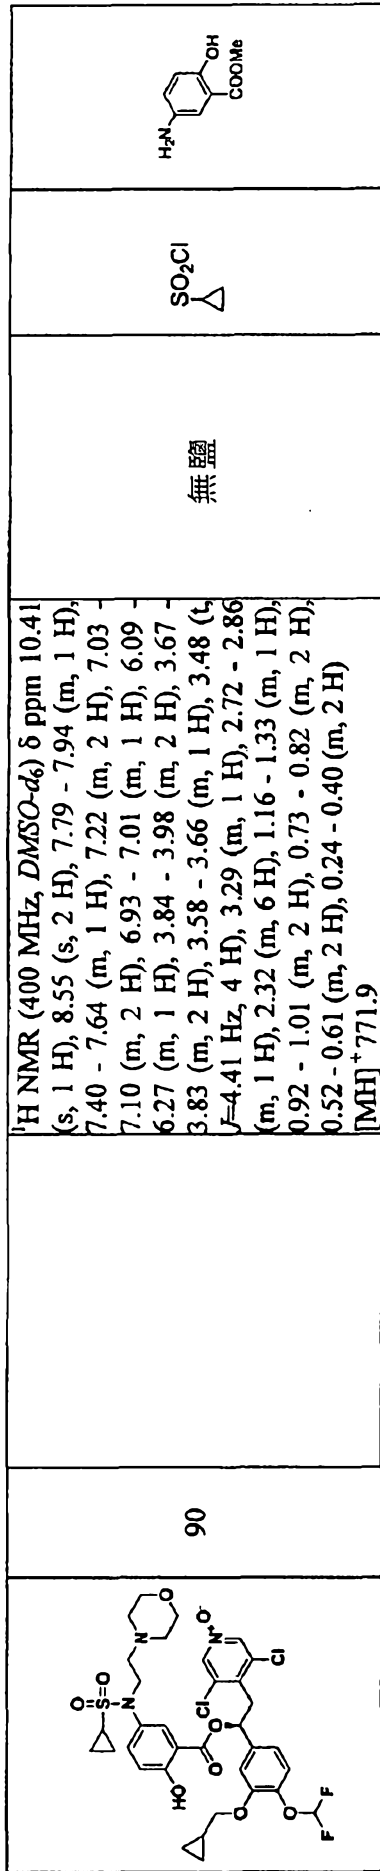 90
¹H NMR (400 MHz, DMSO-d₆) δ ppm 10.41
(s, 1 H), 8.55 (s, 2 H), 7.79 - 7.94 (m, 1 H),
7.40 - 7.64 (m, 1 H), 7.22 (m, 2 H), 7.03 -
7.10 (m, 2 H), 6.93 - 7.01 (m, 1 H), 6.09 -
6.27 (m, 1 H), 3.84 - 3.98 (m, 2 H), 3.67 -
3.83 (m, 2 H), 3.58 - 3.66 (m, 1 H), 3.48 (t,
J=4.41 Hz, 4 H), 3.29 (m, 1 H), 2.72 - 2.86
(m, 1 H), 2.32 (m, 6 H), 1.16 - 1.33 (m, 1 H),
0.92 - 1.01 (m, 2 H), 0.73 - 0.82 (m, 2 H),
0.52 - 0.61 (m, 2 H), 0.24 - 0.40 (m, 2 H)
[MH]⁺ 771.9
無鹽
SO₂Cl
H₂N
OH
COOMe
O
O=S=O
N
N
HO
O
O
Cl
N⁺
O⁻
Cl
O
O
F
F